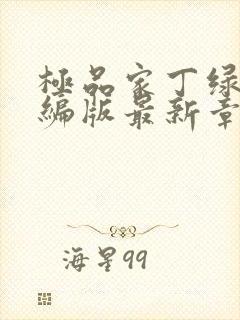 極品家丁绿
編版最新章
海星99